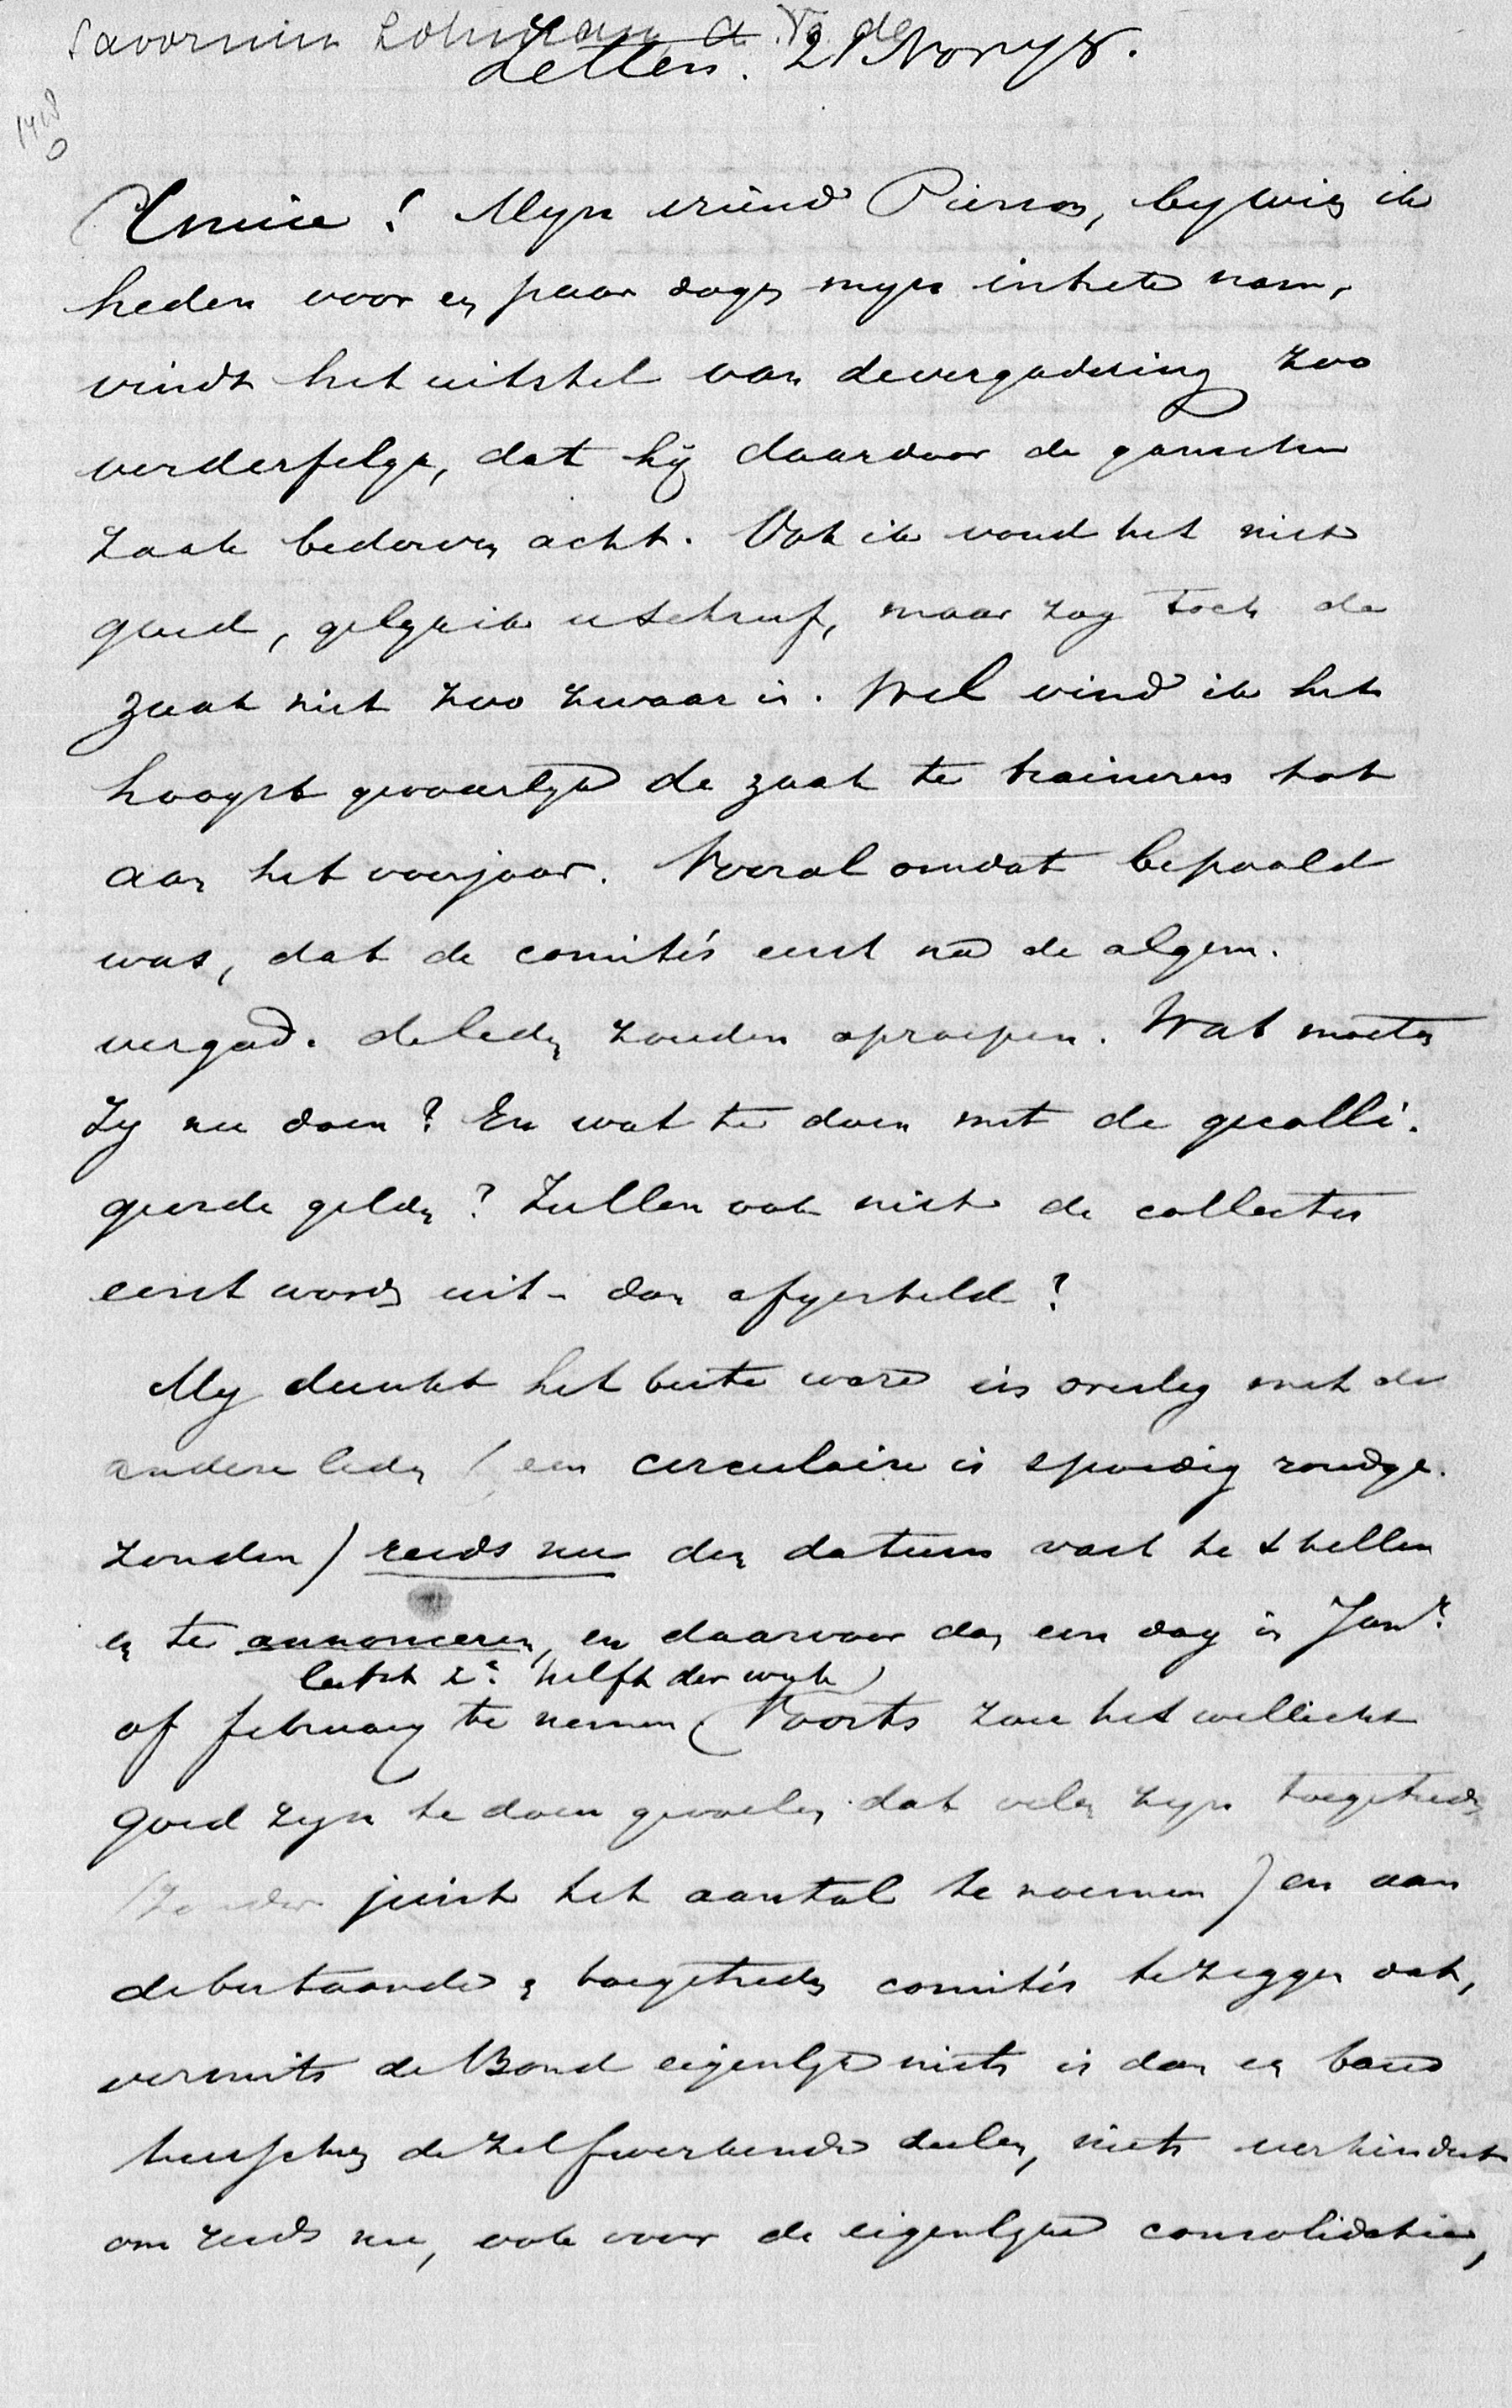 Savornin Lohman, A. F. de
Zetten. 21 Nov 78.
1418
0
Amice! Myn vriend Pierson, by wien ik
heden voor een paar dagen myn intrek nam,
vindt het uitstel van de vergadering zoo
verderfelyk, dat hij daardoor de gansche
zaak bedorven acht. Ook ik vond het niet
goed, gelyk ik u schreef, maar zag toch de
zaak niet zoo zwaar in. Wel vind ik het
hoogst gevaarlyk de zaak te traineren tot
aan het voorjaar. Vooral omdat bepaald
was, dat de comités eerst na de algem.
vergad. de leden zouden oproepen. Wat moeten
zy nu doen? En wat te doen met de gecolli-
geerde gelden? Zullen ook niet de collectes
eerst worden uit- dan afgesteld?
My dunkt het beste ware in overleg met de
andere leden (een circulaire is spoedig rondge-
zonden) reeds nu den datum vast te stellen
en te annonceren, en daarvoor dan een dag in Jan.r
liefst 2e helft der week
of february te nemen (Voorts zou het wellicht
goed zyn te doen gevoelen dat velen zyn toegetreden
(zonder juist het aantal te noemen) en aan
de bestaande & toegetreden comités te zeggen dat,
vermits de Bond eigenlyk niets is dan een band
tusschen de zelfwerkende deelen, niets verhindert
om reeds nu, ook voor de eigenlyke consolidatie,